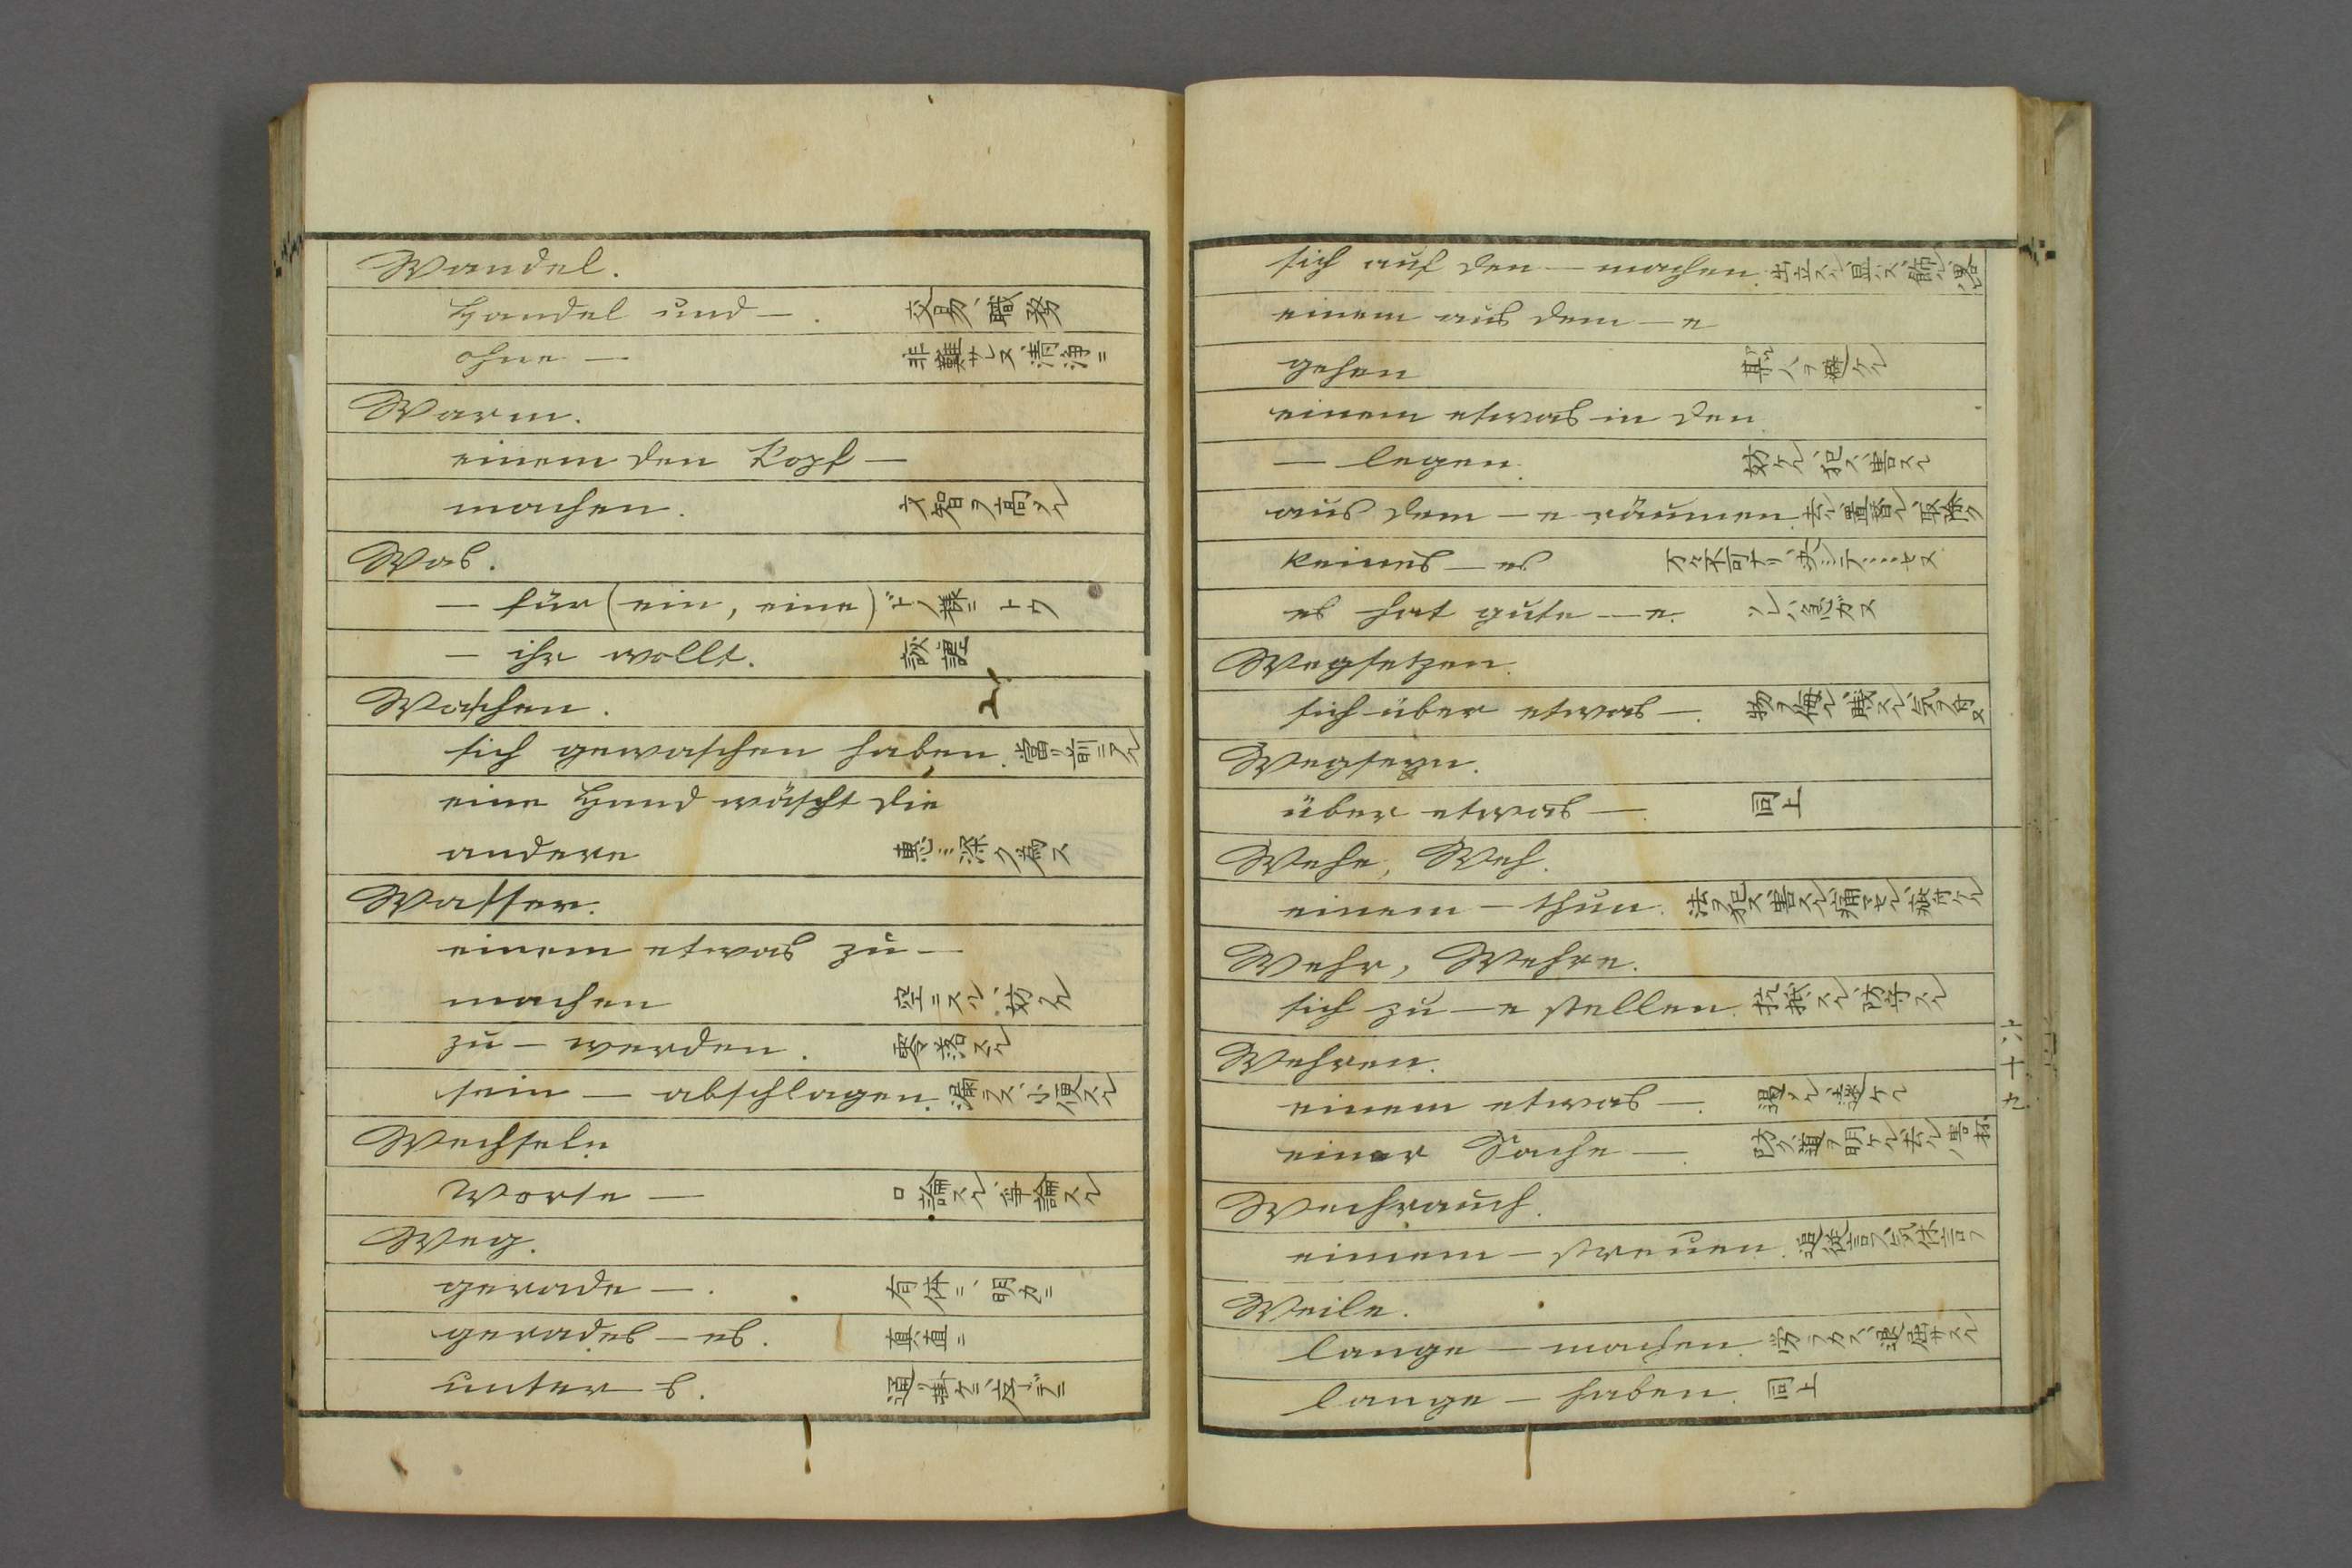 Wandel.
Handel und — . 交易、職務
ohne — 非難サレヌ、清浄ニ
Warm.
einem den Kopf —
machen. 才智ヲ高メル
Was.
— für (ein, eine) ドノ様ニ トワ
— ihr wollt.
Waschen.
sich gewaschen haben. 當リ前ニアル
eine Hand wäscht die
andere 恵ミ深ク為ス
Wasser.
einem etwas zu —
machen 空ニスル、妨ケル
zu — werden. 零落スル
sein — abschlagen. 漏ラス、小便スル
Wechseln
Worte — 口論スル、争論スル
Weg.
gerade — . 有体ニ、明カニ
gerades — es. 真直ニ
unter — s. 通リ掛ケニ、
sich auf den — machen. 出立スル
einem aus dem — e
gehen 某ノ人ヲ避ケル
einem etwas in den
— legen. 妨ケル、犯ス、害スル
aus dem — e räumen. 去ル、置替ル、取除ク
keines — es 不可ナリ、决シテ……セヌ
es hat gute — e. ソレハ急ガヌ
Wegsetzen.
sich über etwas — . 物ヲ侮ル、賎スル
Wegseyn.
über etwas — . 同上
Wehe, Weh.
einem — thun. 法ヲ犯ス、害スル、痛マセル
Wehr, Wehre.
sich zu — e stellen. 抗抵スル、防守スル
Wehren.
einem etwas — .
einer Sache — . 防ク、道ヲ明ケル、去ル
Weihrauch.
einem — streuen. 追従言フ
Weile.
lange — machen. 労ラカス、退屈サスル
lange — haben. 同上
六十九